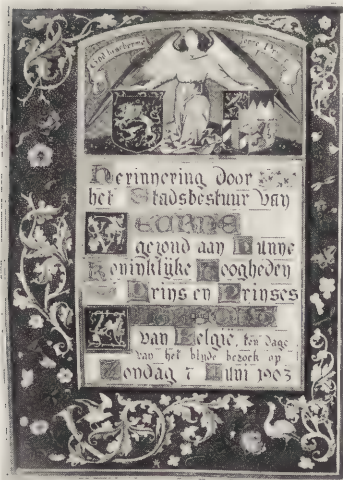 Herinnering door
het Stadsbestuur van
gezond aan Hunne
Koninklijke Hoogheden
Prins en Prinses
van Belgie, ten dage
van het blijde bezoek op
Zondag 7 Juni 1903